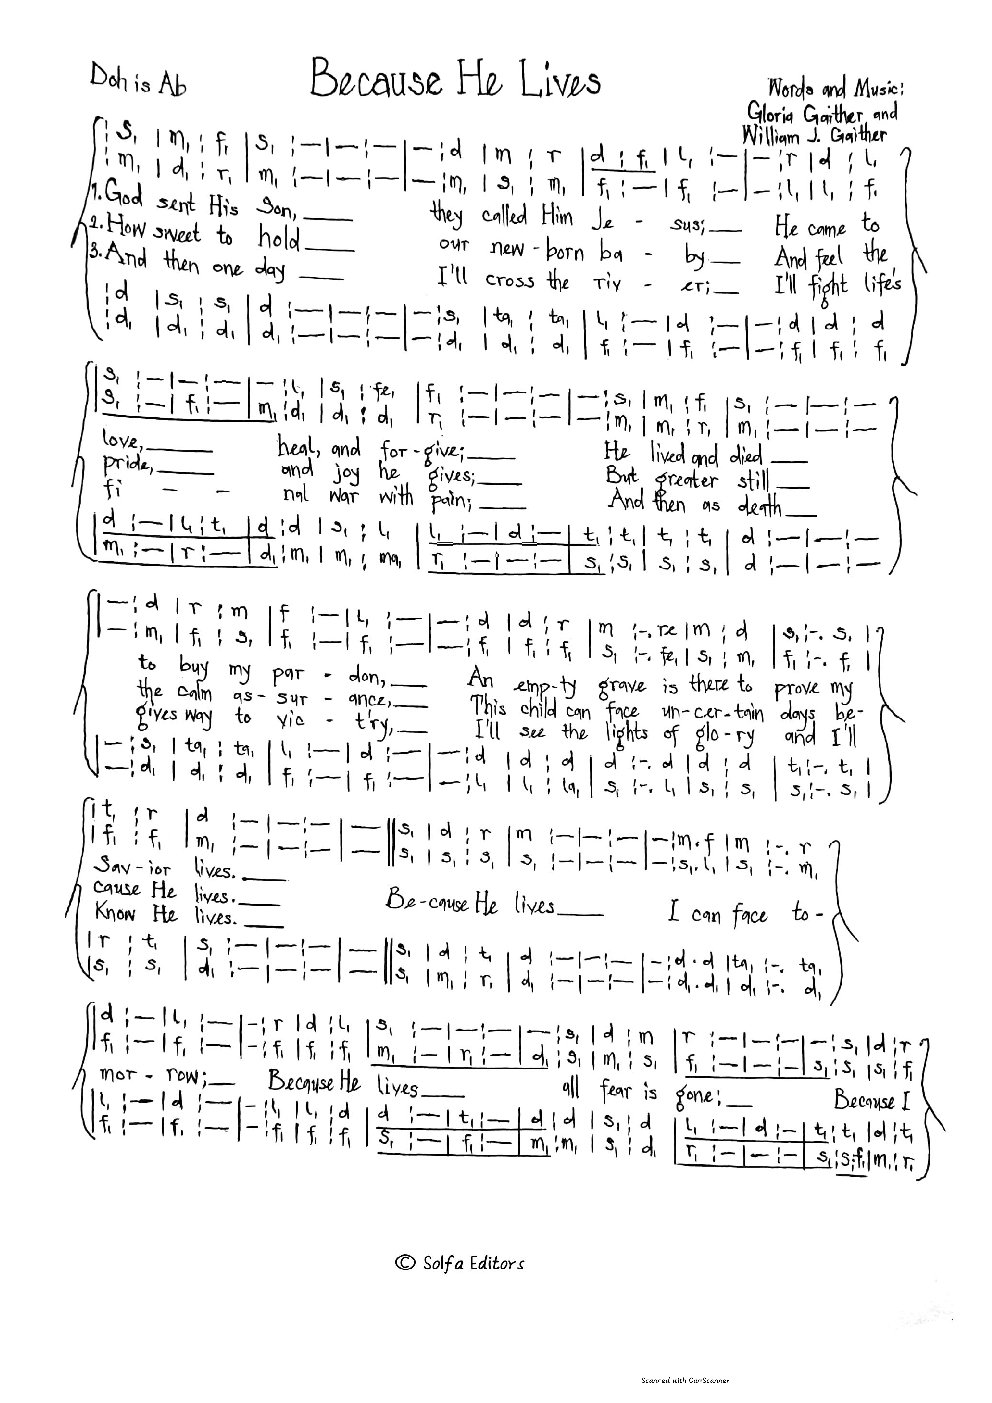 Doh is Ab
Because He Lives
Words and Music:
Gloria Gaither and
William J. Gaither
| : s, | m, : f, | s, : — | — : — | — : d | m : r | d : f, | l, : — | — : r | d : l,
: m, | d, : r, | m, : — | — : — | — : m, | s, : m, | f, : — | f, : — | — : l, | l, : f,
1. God sent His Son, ___ they called Him Je - sus; ___ He came to
2. How sweet to hold ___ our new - born ba - by ___ And feel the
3. And then one day ___ I'll cross the riv - er; ___ I'll fight life's
: d | s, : s, | d : — | — : — | — : s, | ta, : ta, | l, : — | d : — | — : d | d : d
: d, | d, : d, | d, : — | — : — | — : d, | d, : d, | f, : — | f, : — | — : f, | f, : f,
| s, : — | — : — | — : l, | s, : fe, | f, : — | — : — | — : s, | m, : f, | s, : — | — : —
| s, : — | f, : — | m, : d, | d, : d, | r, : — | — : — | — : m, | m, : r, | m, : — | — : —
love, ___ heal, and for - give; ___ He lived and died ___
pride, ___ and joy he gives; ___ But greater still ___
fi - - nal war with pain; ___ And then as death ___
| d : — | l, : t, | d : d | s, : l, | l, : — | d : — | t, : t, | t, : t, | d : — | — : —
| m, : — | r, : — | d, : m, | m, : ma, | r, : — | — : — | s, : s, | s, : s, | d : — | — : —
| — : d | r : m | f : — | l, : — | — : d | d : r | m : -. re | m : d | s, : -. s, |
— : m, | f, : s, | f, : — | f, : — | — : f, | f, : f, | s, : -. fe, | s, : m, | f, : -. f, |
to buy my par - don, ___ An emp-ty grave is there to prove my
the calm as - sur - ance, ___ This child can face un-cer-tain days be-
gives way to vic - t'ry, ___ I'll see the lights of glo-ry and I'll
| — : s, | ta, : ta, | l, : — | d : — | — : d | d : d | d : -. d | d : d | t, : -. t, |
— : d, | d, : d, | f, : — | f, : — | — : l, | l, : la, | s, : -. l, | s, : s, | s, : -. s, |
| t, : r | d : — | — : — | — || s, | d : r | m : — | — : — | — : m.f | m : -. r
| f, : f, | m, : — | — : — | — || s, | s, : s, | s, : — | — : — | — : s,.l, | s, : -. m,
Sav - ior lives. ___
cause He lives. ___ Be-cause He lives ___ I can face to -
Know He lives. ___
| r : t, | s, : — | — : — | — || s, | d : t, | d : — | — : — | — : d.d | ta, : -. ta,
| s, : s, | d, : — | — : — | — || s, | m, : r, | d, : — | — : — | — : d,.d, | d, : -. d,
| d : — | l, : — | — : r | d : l, | s, : — | — : — | — : s, | d : m | r : — | — : — | — : s, | d : r
f, : — | f, : — | — : f, | f, : f, | m, : — | r, : — | d, : s, | m, : s, | f, : — | — : — | s, : s, | s, : f,
mor - row; ___ Because He lives ___ all fear is gone; ___ Because I
| l, : — | d : — | — : l, | l, : d | d : — | t, : — | d : d | s, : d | l, : — | d : — | t, : t, | d : t,
f, : — | f, : — | — : f, | f, : f, | s, : — | f, : — | m, : m, | s, : d, | r, : — | — : — | s, : s,.f, | m, : r,
© Solfa Editors
Scanned with CamScanner